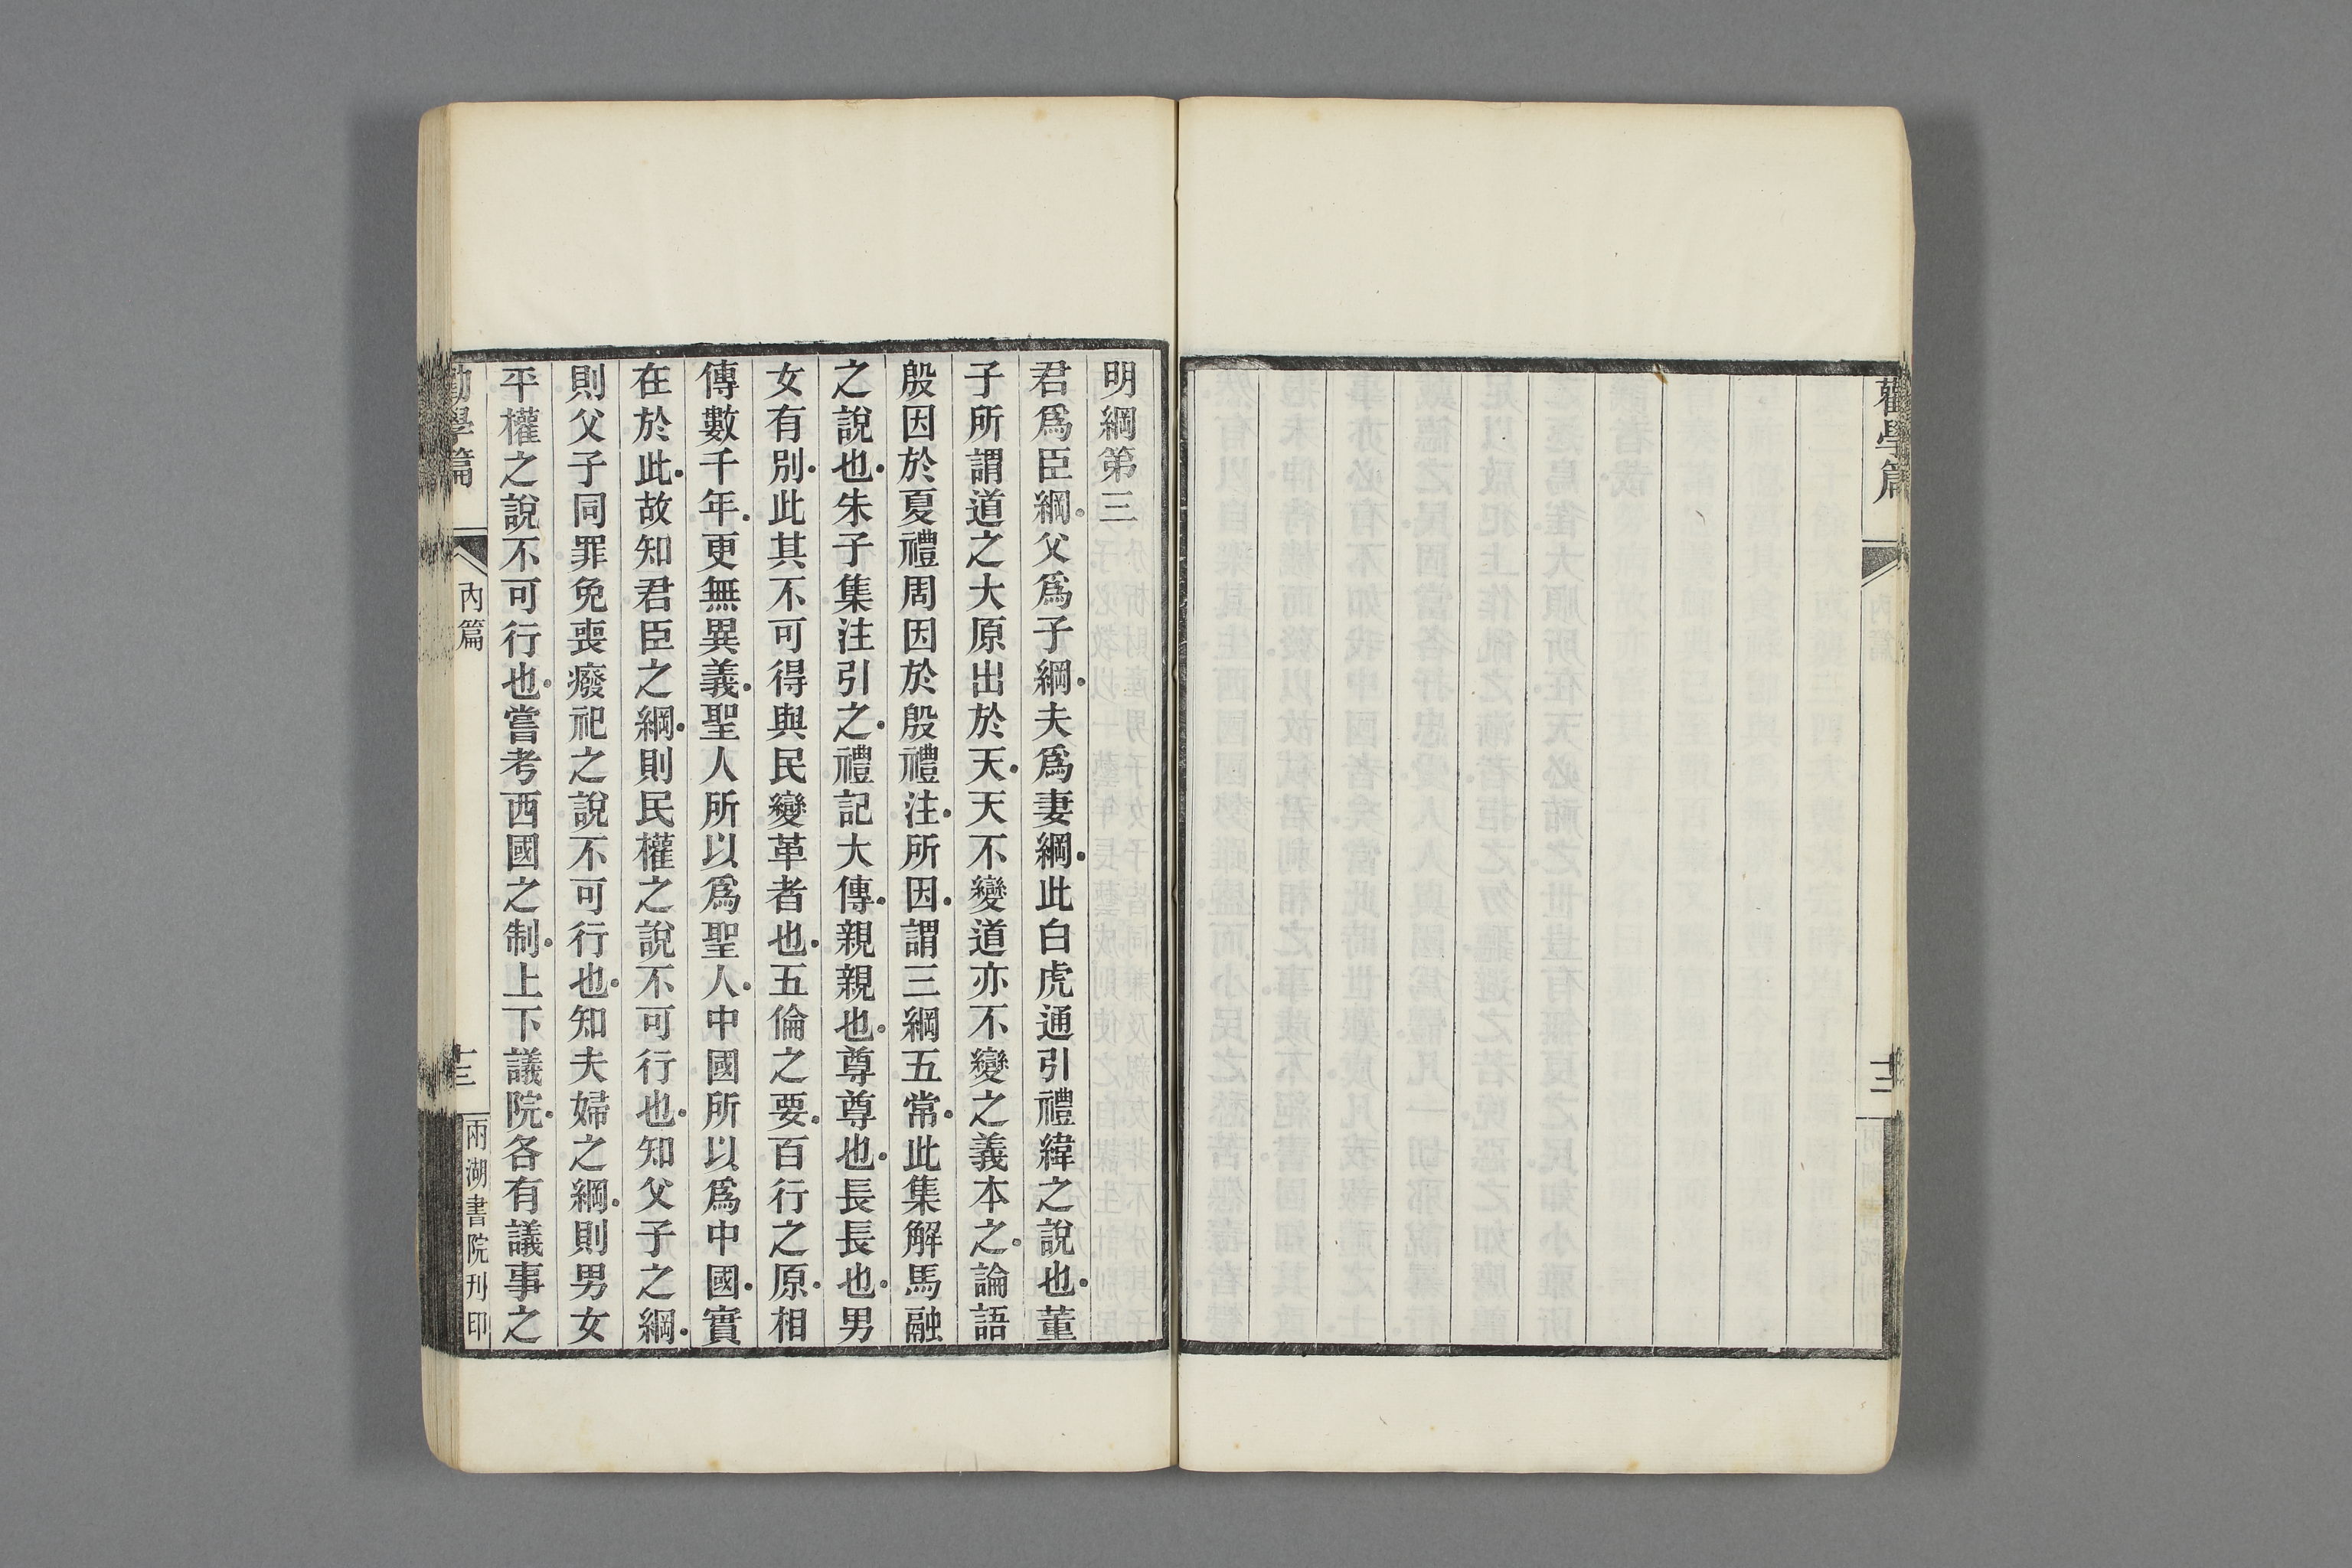 勸學篇
內篇
十二
明綱第三
君爲臣綱。父爲子綱。夫爲妻綱。此白虎通引禮緯之說也。董
子所謂道之大原出於天。天不變道亦不變之義本之。論語
殷因於夏禮周因於殷禮注。所因。謂三綱五常。此集解馬融
之說也。朱子集注引之。禮記大傳。親親也。尊尊也。長長也。男
女有別。此其不可得與民變革者也。五倫之要。百行之原。相
傳數千年。更無異義。聖人所以爲聖人。中國所以爲中國。實
在於此。故知君臣之綱。則民權之說不可行也。知父子之綱。
則父子同罪免喪癈祀之說不可行也。知夫婦之綱。則男女
平權之說不可行也。嘗考西國之制。上下議院。各有議事之
勸學篇
內篇
十三
兩湖書院刊印